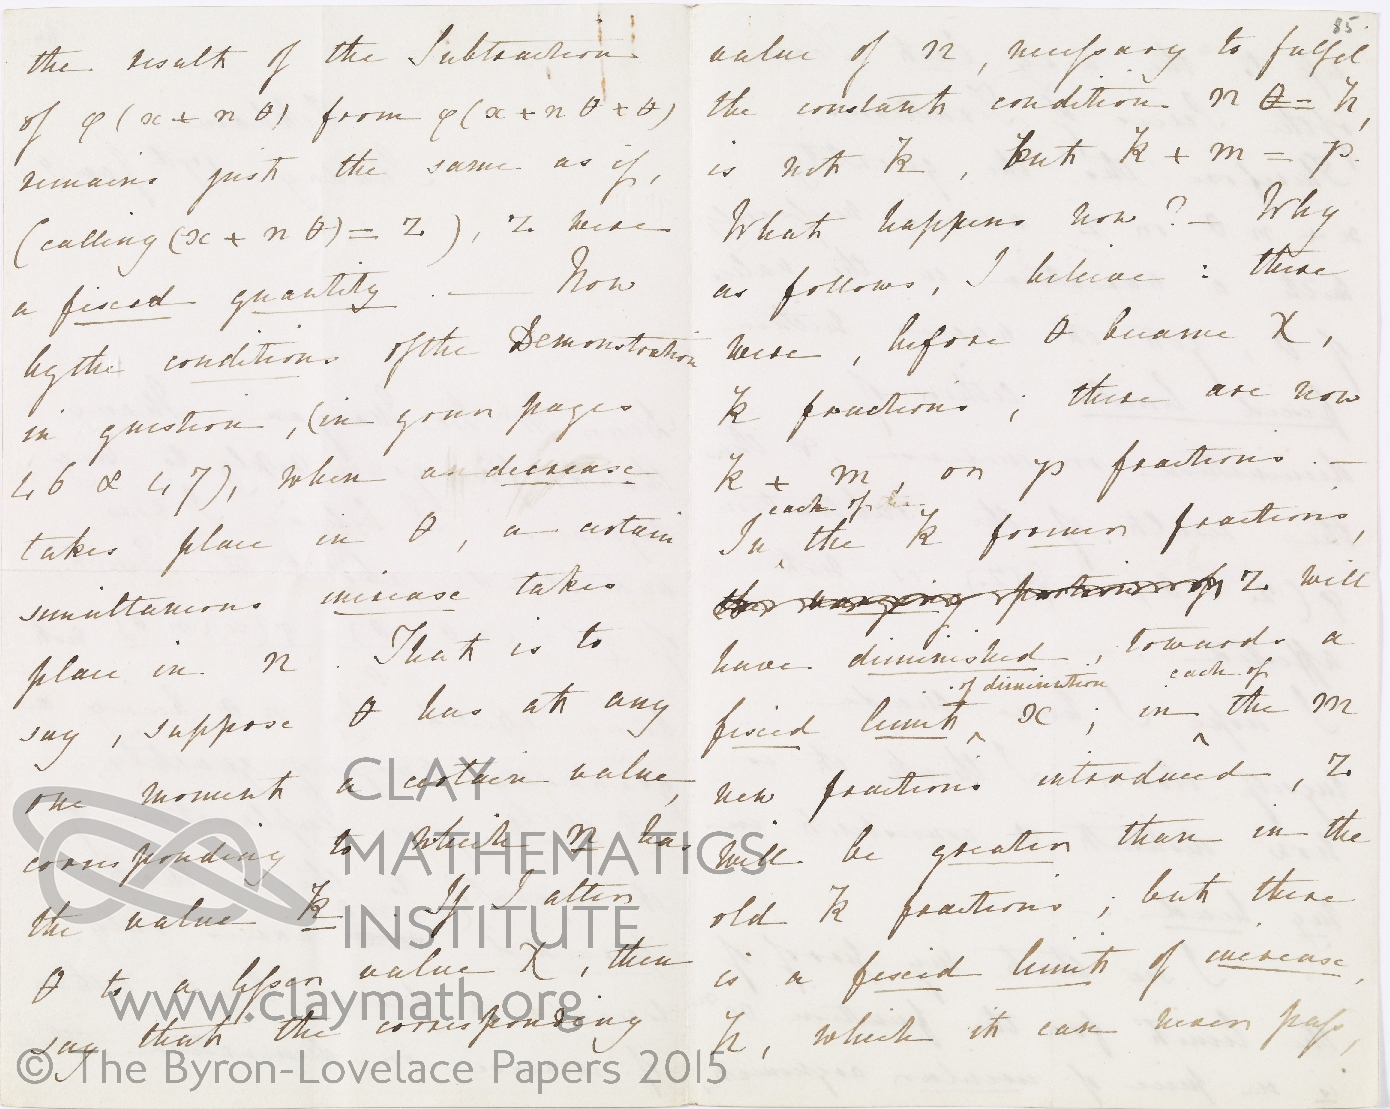 the result of the Subtraction
of φ(x + n θ) from φ(x + n θ + θ)
remains just the same as if,
(calling (x + n θ) = Z), Z were
a fixed quantity. — Now
by the conditions of the Demonstration
in question, (in your pages
46 & 47), when a decrease
takes place in θ, a certain
simultaneous increase takes
place in n. That is to
say, suppose θ has at any
one moment a certain value,
corresponding to which n has
the value k. If I alter
θ to a lesser value X, then
say that the corresponding
85
value of n, necessary to fulfil
the constant condition n θ = h,
is not k, but k + m = p.
What happens now? — Why
as follows, I believe: there
were, before θ became X,
k fractions; there are now
k + m, or p fractions. —
each of the
In the k former fractions,
the varying portion of Z will
have diminished, towards a
of diminution each of
fixed limit x; in the m
new fractions introduced, Z
will be greater than in the
old k fractions; but there
is a fixed limit of increase,
h, which it can never pass,
CLAY
MATHEMATICS
INSTITUTE
www.claymath.org
© The Byron-Lovelace Papers 2015